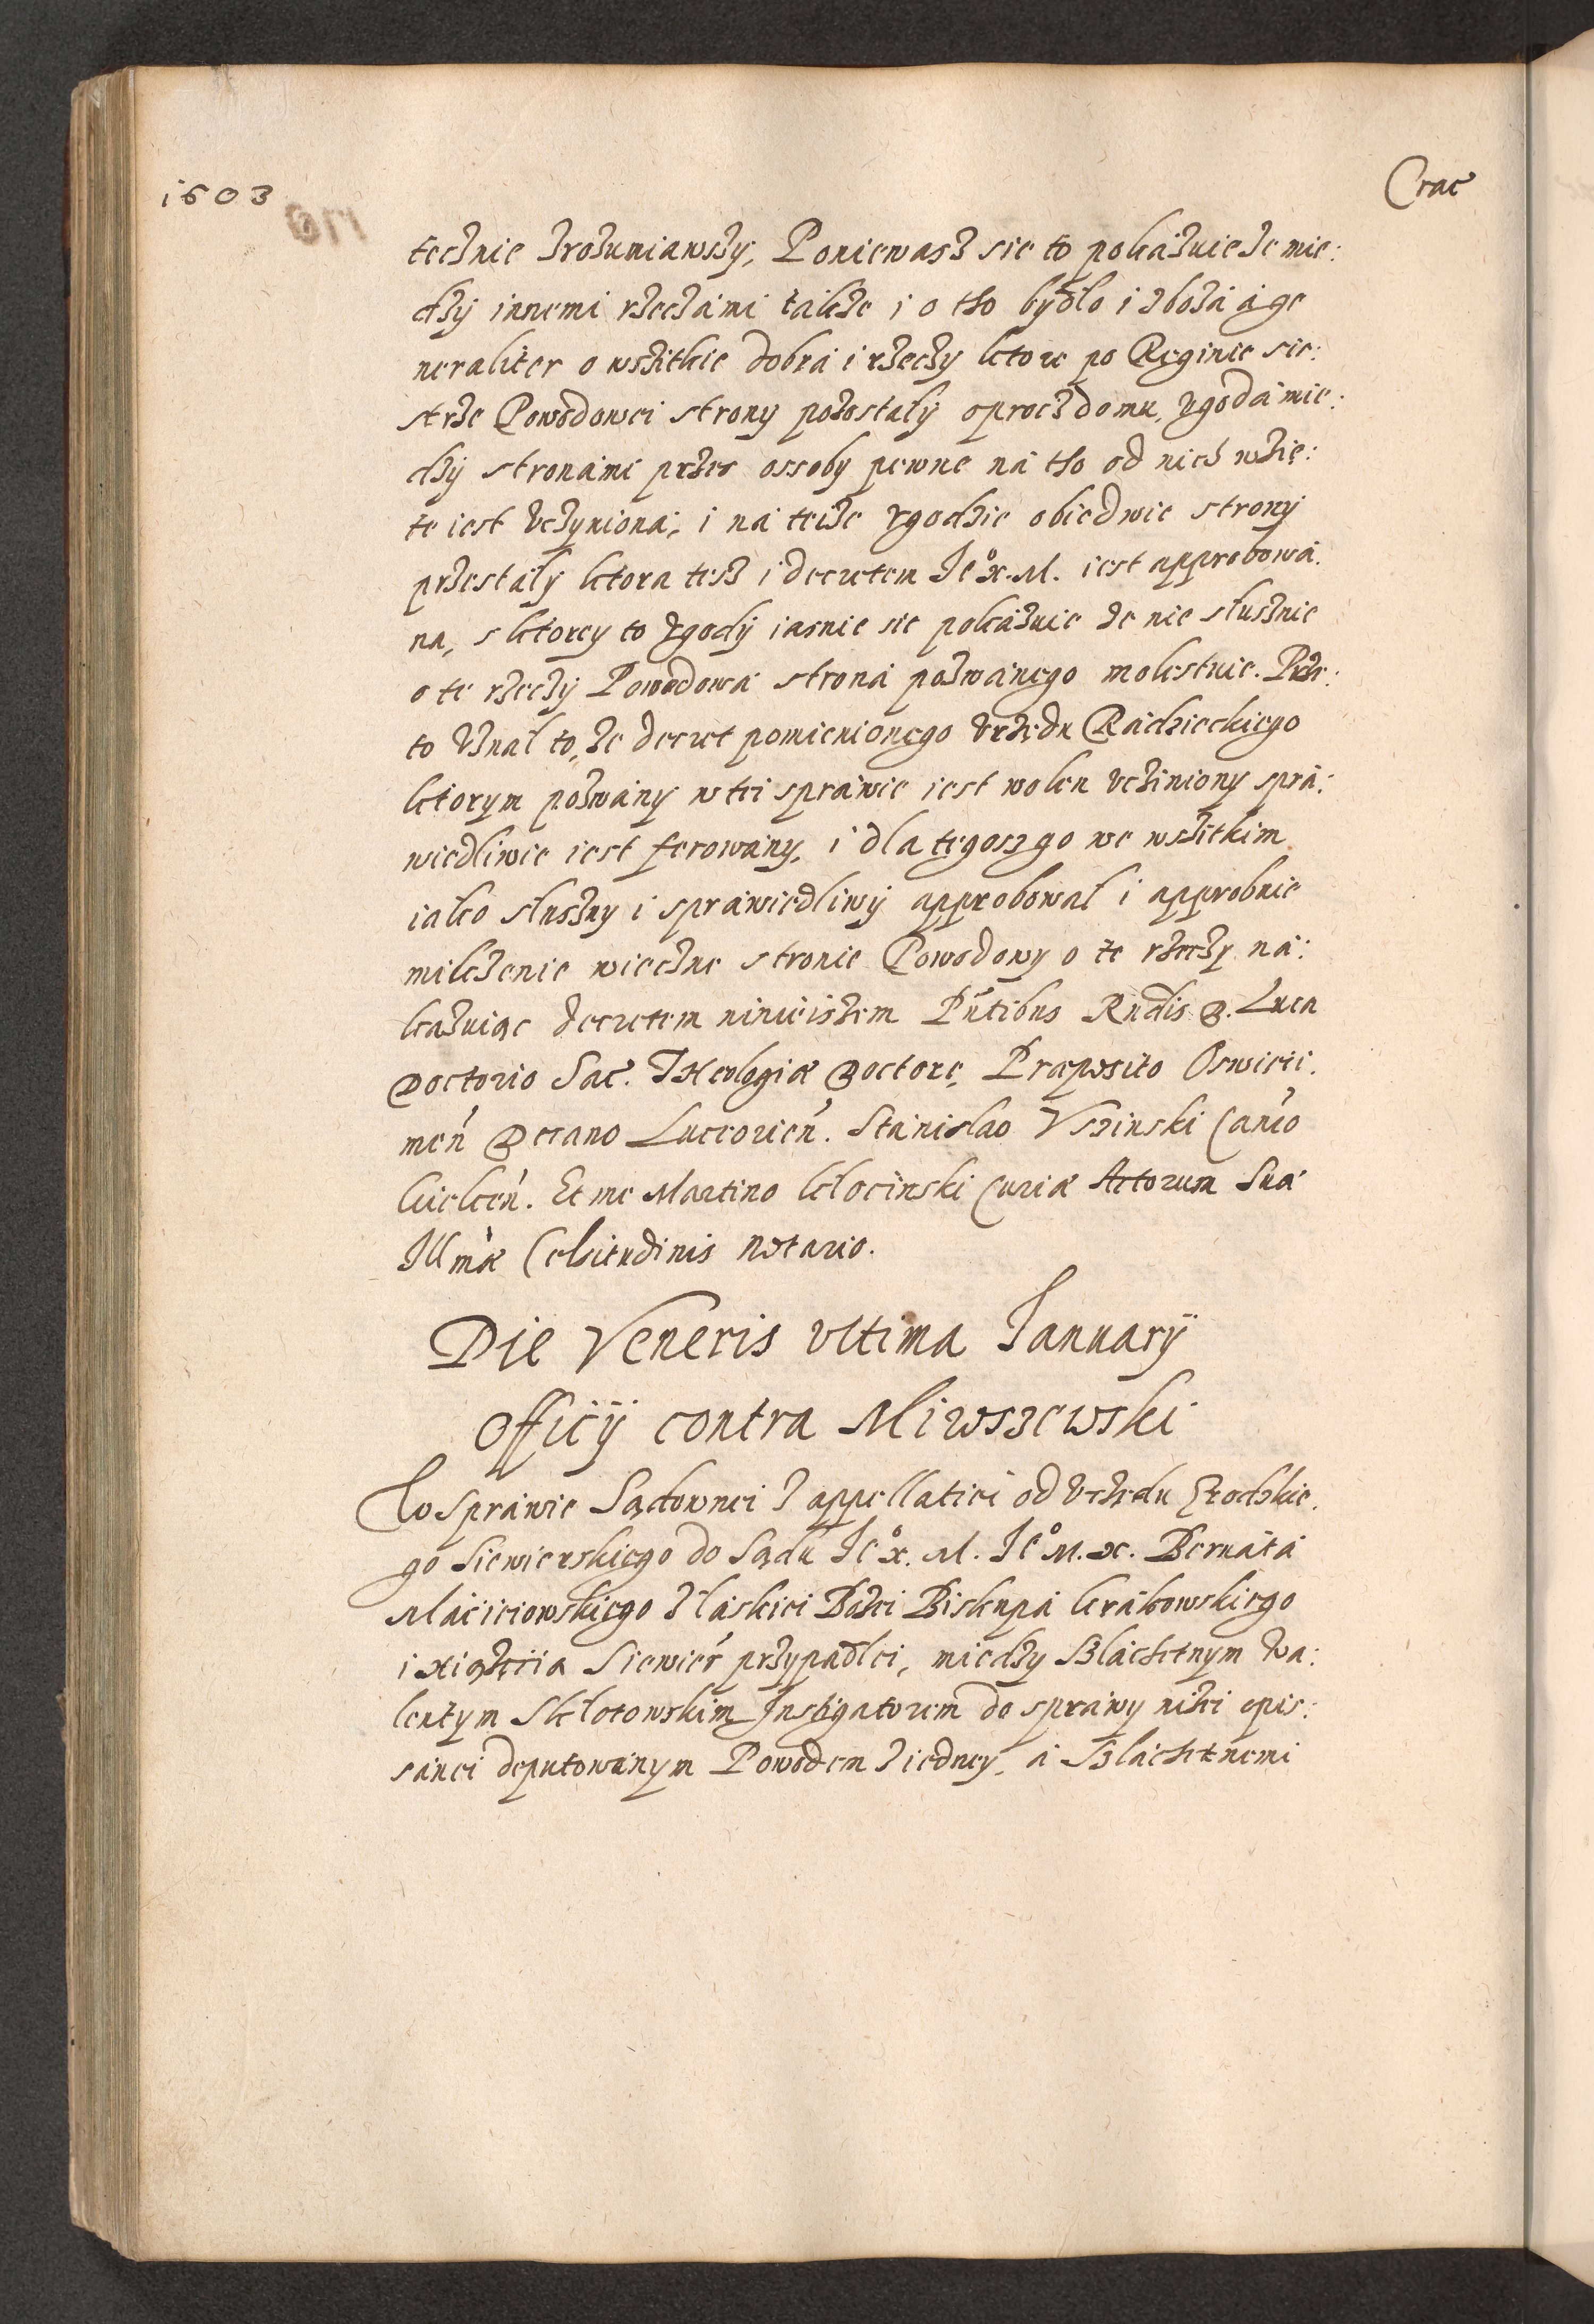 1603
Crac
tecznie zrozumiawszy, Poniewasz sie to pokázuie ze mie:
dzy innemi rzeczámi tákze i o tho bydlo i zbozá á ge
neraliter o wszitkie dobrá i rzeczy ktore po Reginie sie:
strze Powodowei strony pozostały oprocz domu, zgodá mie:
dzy stronámi przes ossoby pewne ná tho od nich wzię:
te iest vczyniona, i ná teize zgodzie obiedwie strony
przestáły ktora tesz i decretem Je° x. M. iest approbowá.
na, s ktorey to zgody iasnie sie pokázuie ze nie słusznie
o te rzeczy Powodowá stroná pozwánego molestuie. Prze:
to Vznal to, ze decret pomienionego vrzędu Rádzieckiego
ktorym pozwány w tei spráwie iest wolen vcziniony sprá:
wiedliwie iest ferowány, i dla tegosz go we wszitkim
iako słuszny i spráwiedliwy approbował i approbuie
milczenie wieczne stronie Powodowy o te rzeczy ná:
kazuiąc decretem ninieiszem Pńtibus Rndis D. Luca
Doctorio Sac. Theologiæ Doctore, Præposito Oswieci.
meń Decano Luceorień. Stánislao Vszinski Cańco
kielceń. Et me Martino Klocinski Curiæ Actorum Suæ
Illmæ Celsitudinis Notario.
Die Veneris vltima Januarij
Officij contra Mirwszewski
W Spráwie Sądownei z appellatiei od vrzędu Grodzkie.
go Siewierskiego do Sądu Je° x. M. Je° M. x. Bernátá
Máciciowskiego z łáskiei Bozei Biskupá krákowskiego
i xiązęcia Siewieŕ przypadlei, miedzy Szláchetnym Wa:
lentym Sklotowskim Instigatorem do spráwy nizei opis:
sánei deputowánym Powodem z iedney, á Szláchetnemi